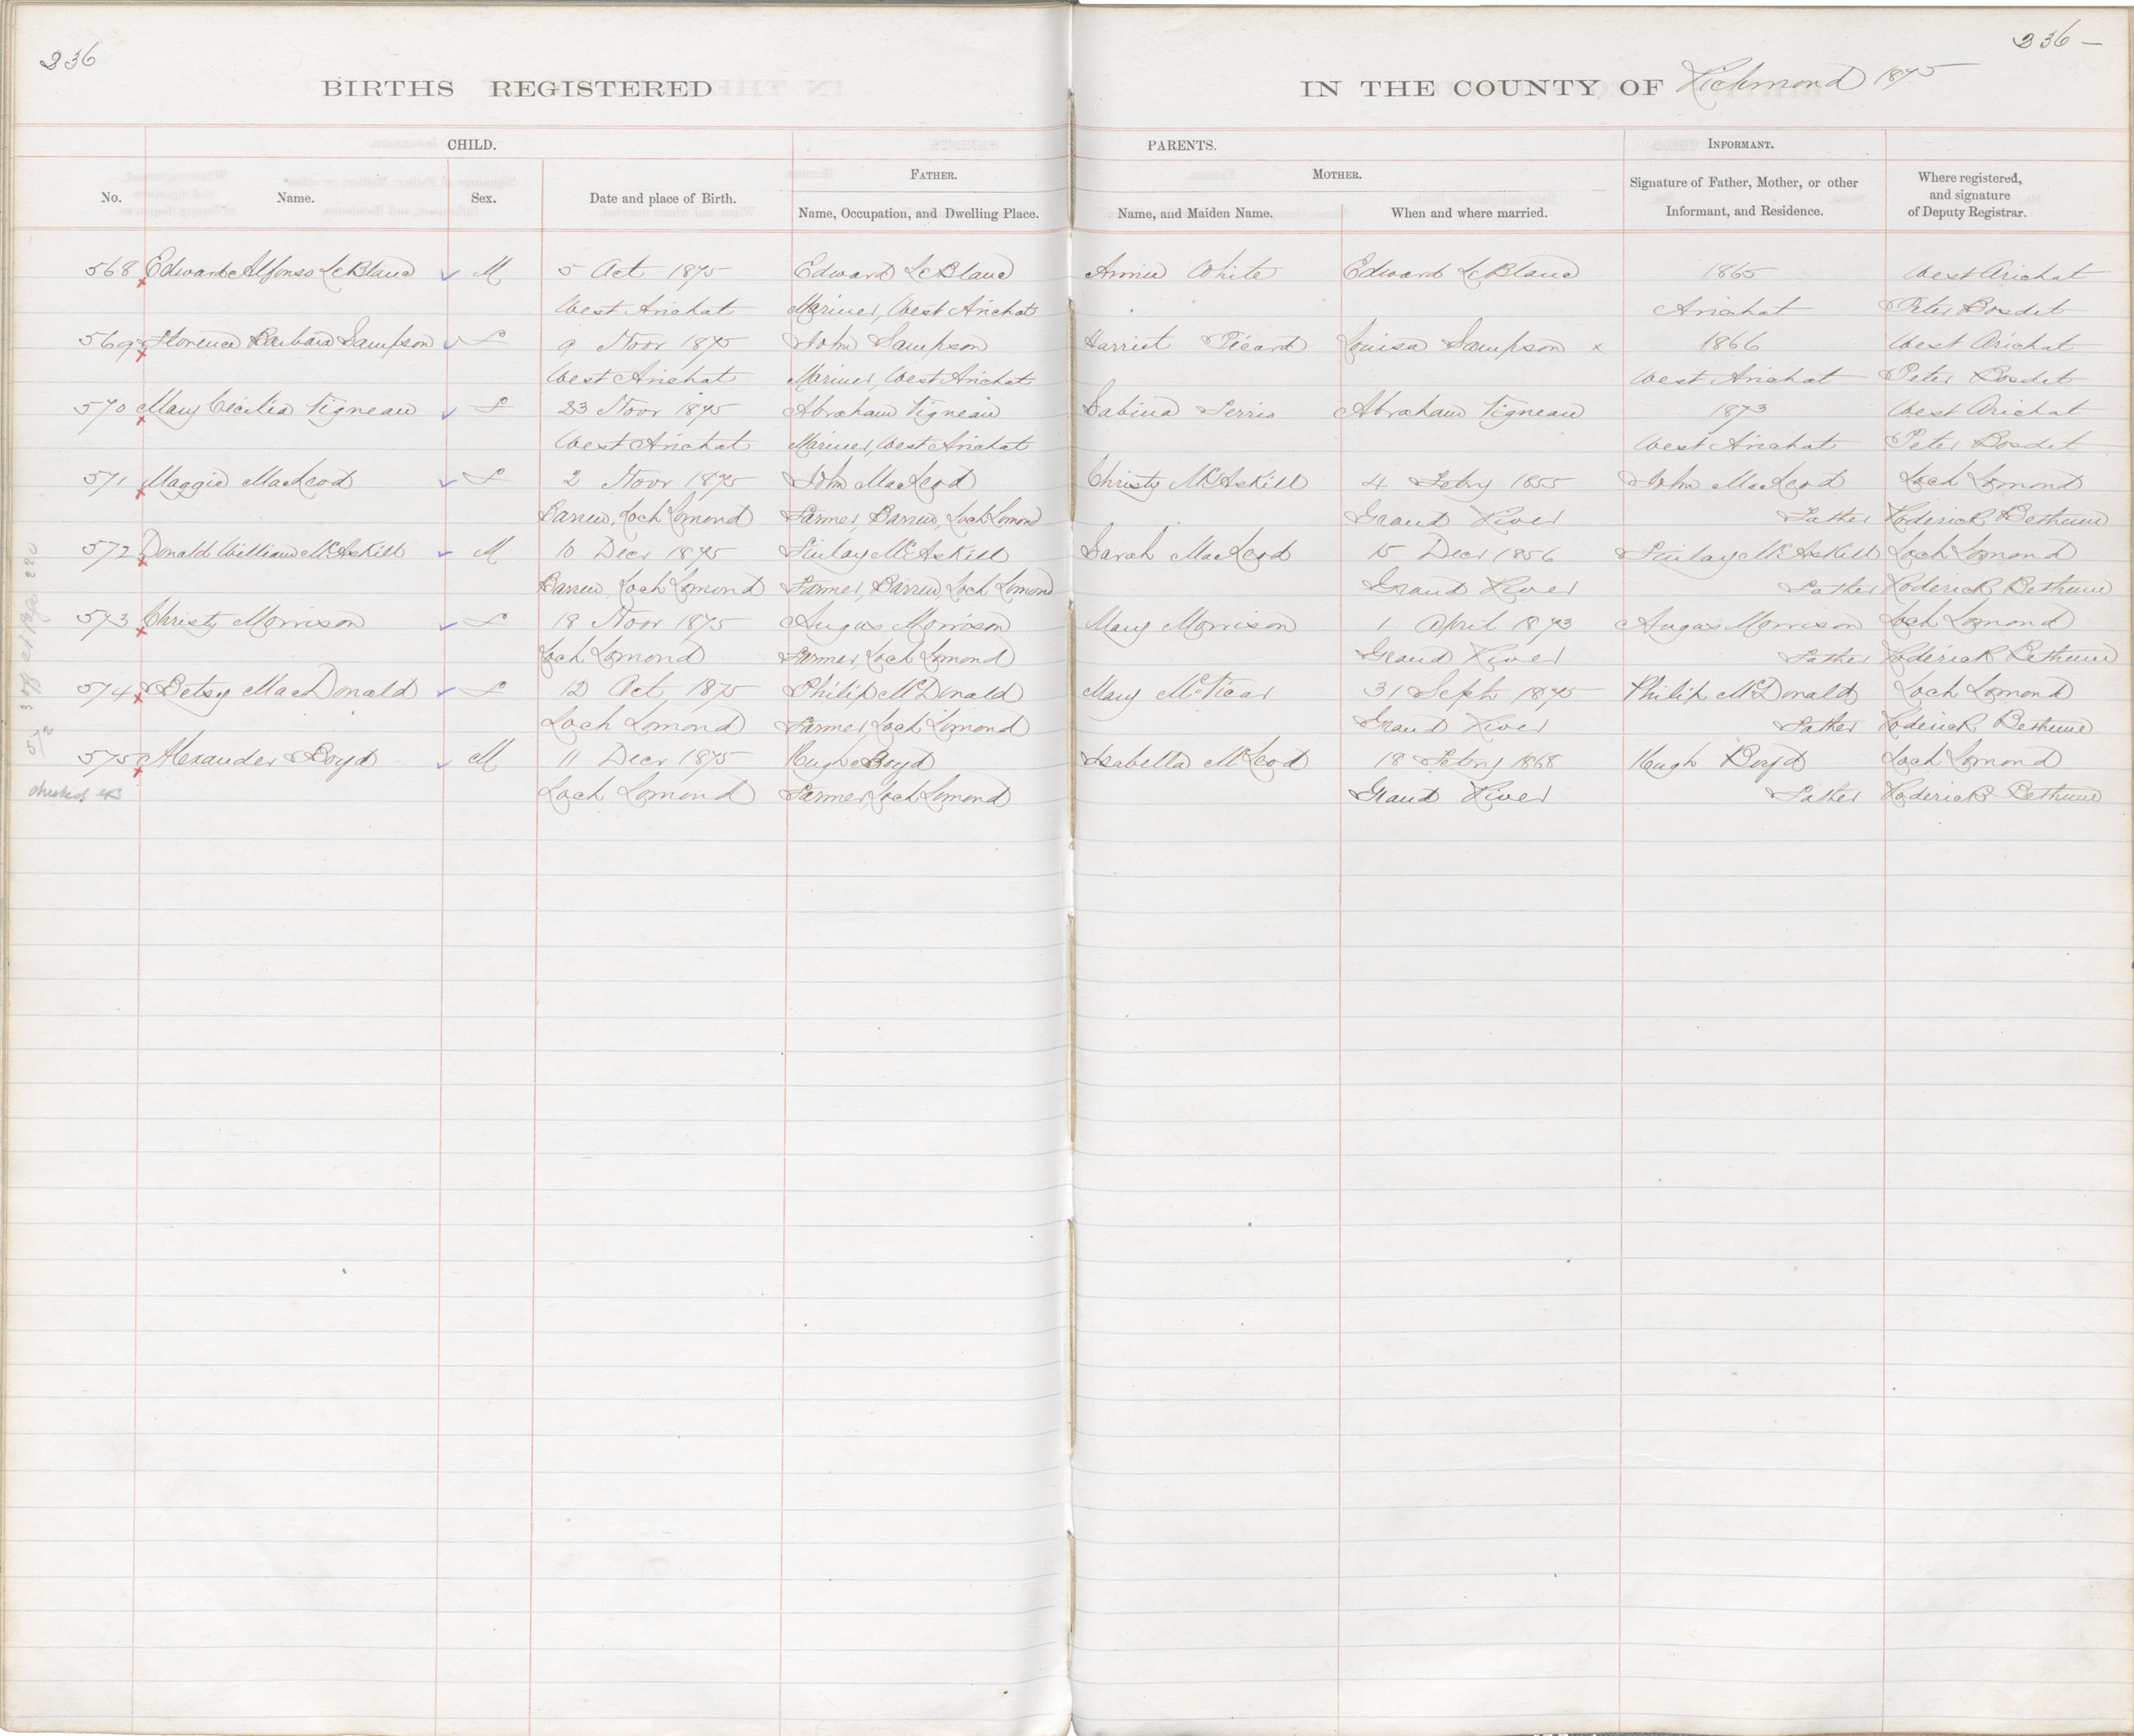 336
336 –
BIRTHS REGISTERED
IN THE COUNTY OF Richmond 1875
CHILD.
PARENTS.
INFORMANT.
No.
Name.
Sex.
Date and place of Birth.
FATHER.
Name, Occupation, and Dwelling Place.
MOTHER.
Name, and Maiden Name.
When and where married.
Signature of Father, Mother, or other
Informant, and Residence.
Where registered,
and signature
of Deputy Registrar.
568 Edward Alfonso LeBlanc M 5 Oct 1875 Edward LeBlanc Annie White Edward LeBlanc 1865 West Arichat
West Arichat Mariner, West Arichat Arichat Peter Bosdet
569 Florence Barbara Sampson F 9 Novr 1875 John Sampson Harriet Picard Louisa Sampson x 1866 West Arichat
West Arichat Mariner, West Arichat West Arichat Peter Bosdet
570 Mary Cecilia Vigneau F 23 Novr 1875 Abraham Vigneau Sabina Ferris Abraham Vigneau 1873 West Arichat
West Arichat Mariner, West Arichat West Arichat Peter Bosdet
571 Maggie MacLeod F 2 Novr 1875 John MacLeod Christy McAskill 4 Feby 1855 John MacLeod Loch Lomond
Barren, Loch Lomond Farmer, Barren, Loch Lomond Grand River Father Roderick Bethune
572 Donald William McAskill M 10 Decr 1875 Finlay McAskill Sarah MacLeod 15 Decr 1856 Finlay McAskill Loch Lomond
Barren, Loch Lomond Farmer, Barren, Loch Lomond Grand River Father Roderick Bethune
573 Christy Morrison F 18 Novr 1875 Angus Morrison Mary Morrison 1 April 1873 Angus Morrison Loch Lomond
Loch Lomond Farmer, Loch Lomond Grand River Father Roderick Bethune
574 Betsy MacDonald F 12 Oct 1875 Philip McDonald Mary McVicar 31 Septr 1875 Philip McDonald Loch Lomond
Loch Lomond Farmer, Loch Lomond Grand River Father Roderick Bethune
575 Alexander Boyd M 11 Decr 1875 Hugh Boyd Isabella McLeod 18 Febry 1868 Hugh Boyd Loch Lomond
Loch Lomond Farmer, Loch Lomond Grand River Father Roderick Bethune
checked